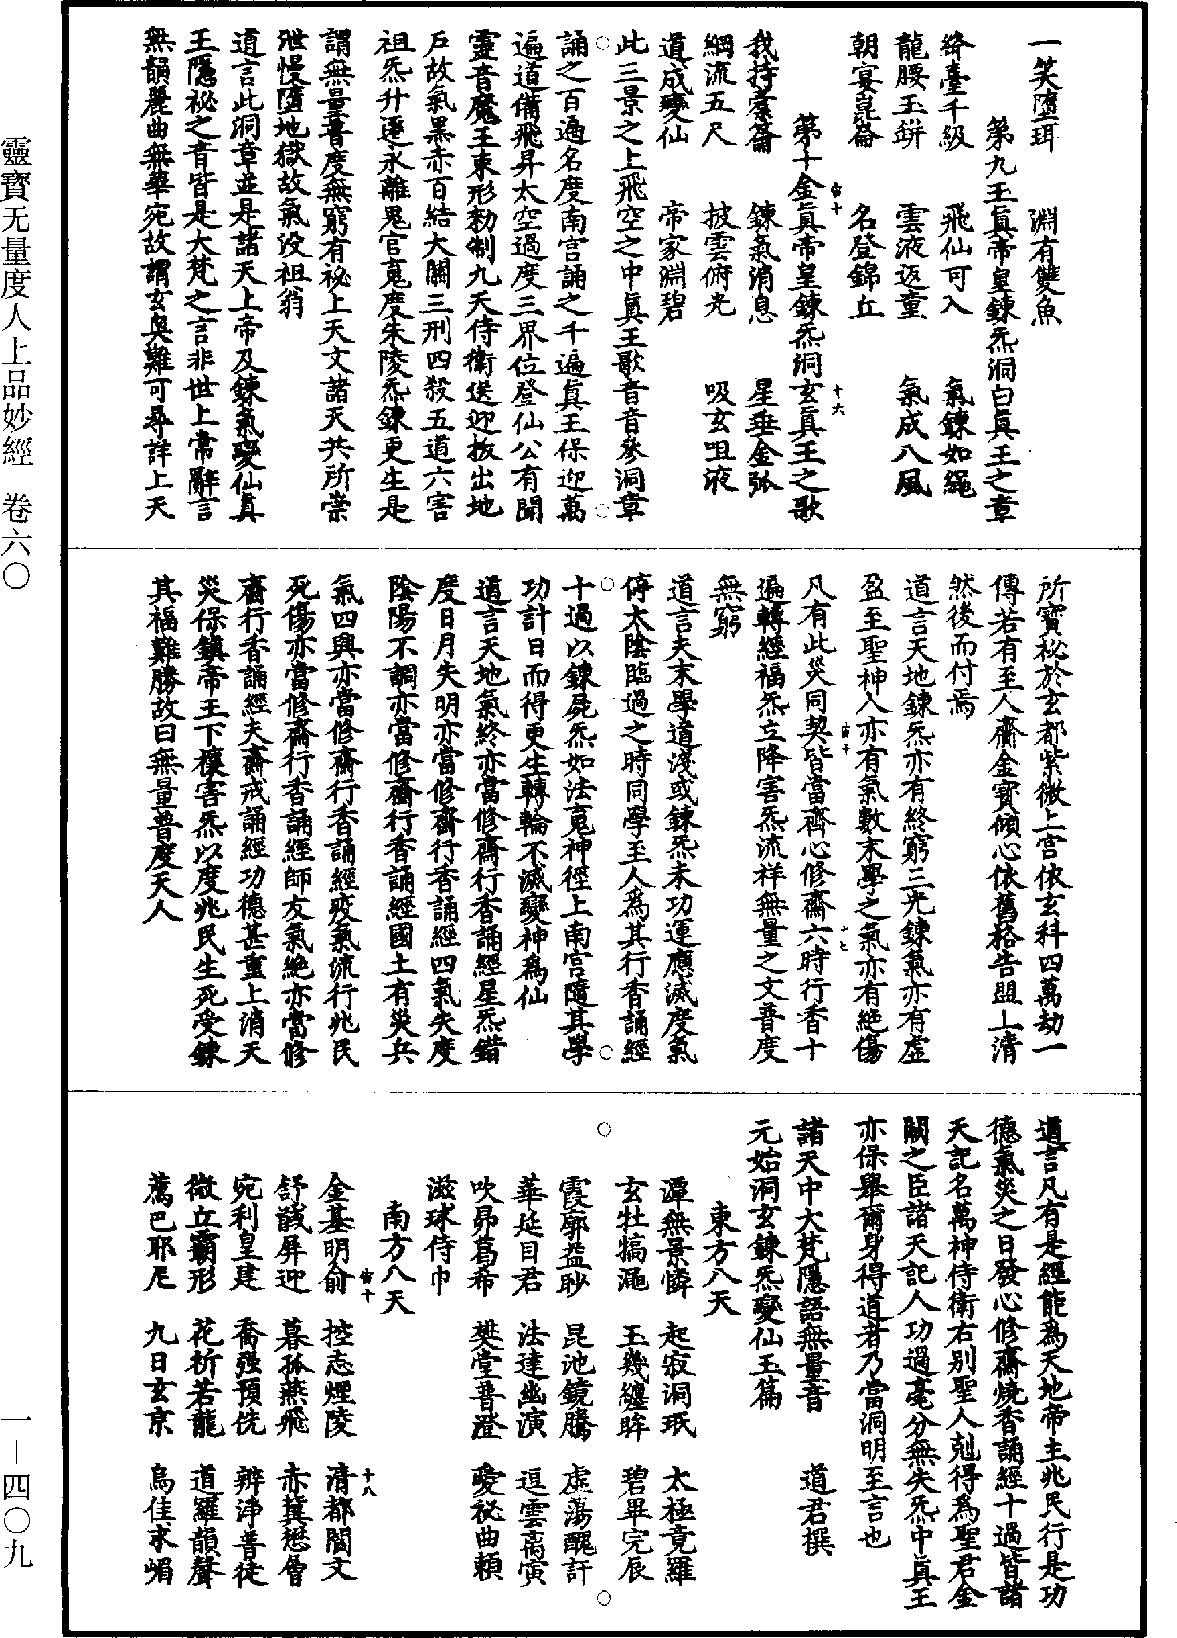 一笑墮珥　淵有雙魚
第九玉真帝皇鍊炁洞白真王之章
絳臺千級　飛仙可入　氣鍊如繩
龍腰玉缾　雲液返童　氣成八風
朝宴崑崙　名登錦丘
第十金真帝皇鍊炁洞玄真王之歌
我持素籥　鍊氣消息　星垂金弧
綱流五尺　披雲俯光　吸玄咀液
道成變仙　帝家淵碧
此三景之上飛空之中真王歌音音參洞章
誦之百過名度南宫誦之千遍真王保迎萬
遍道備飛昇太空過度三界位登仙公有聞
靈音魔王束形勑制九天侍衛送迎拔出地
戶故氣黑赤百結大關三刑四殺五道六害
祖炁升遷永離鬼官䰟度朱陵炁鍊更生是
謂無量普度無窮有祕上天文諸天共所崇
泄慢墮地獄故氣没祖翁
道言此洞章並是諸天上帝及鍊氣變仙真
王隱祕之音皆是大梵之言非世上常辭言
無韻麗曲無華宛故謂玄奥難可尋詳上天
所寶祕於玄都紫微上宫依玄科四萬劫一
傳若有至人齎金寶傾心依舊格告盟上清
然後而付焉
道言天地鍊炁亦有終窮三光鍊氣亦有虛
盈至聖神人亦有氣數末學之氣亦有絶傷
凡有此災同契皆當齊心修齋六時行香十
遍轉經福炁立降害炁流祥無量之文普度
無窮
道言夫末學道淺或鍊炁未功運應滅度氣
停太陰臨過之時同學至人爲其行香誦經
十過以鍊屍炁如法䰟神徑上南宫隨其學
功計日而得更生轉輪不滅變神爲仙
道言天地氣終亦當修齋行香誦經星炁錯
度日月失明亦當修齋行香誦經四氣失度
陰陽不調亦當修齋行香誦經國土有災兵
氣四興亦當修齋行香誦經疫氣流行兆民
死傷亦當修齋行香誦經師友氣絶亦當修
齋行香誦經夫齋戒誦經功德甚重上消天
災保鎮帝王下禳害炁以度兆民生死受鍊
其福難勝故曰無量普度天人
道言凡有是經能爲天地帝主兆民行是功
德氣災之日發心修齋燒香誦經十過皆諸
天記名萬神侍衛右别聖人剋得爲聖君金
闕之臣諸天記人功過毫分無失炁中真王
亦保舉爾身得道者乃當洞明至言也
諸天中大梵隱語無量音　道君撰
元始洞玄鍊炁變仙玉篇
東方八天
潭無景憐　起寂洞珉　太極竟羅
玄牡犒涵　玉幾纏眸　碧畢完辰
霞郭益耿　昆池鏡騰　虛蕩醜訐
華延目君　法達幽演　逗雲禼寅
吹昴菖希　樊堂普澄　愛祕曲賴
滋球侍巾
南方八天
金基明俞　控志煙陵　清都閻文
舒䜟屏迎　暮孤燕飛　赤冀愁脅
宛利皇建　喬强預侊　辨浄菩徒
微立霸形　花析若龍　道羅韻聲
薦巴耶尼　九日玄京　烏佳求嵋
靈寶无量度人上品妙經　卷六〇
一—四〇九